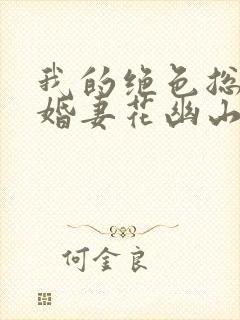 我的绝色总
婚妻花幽山
何金良